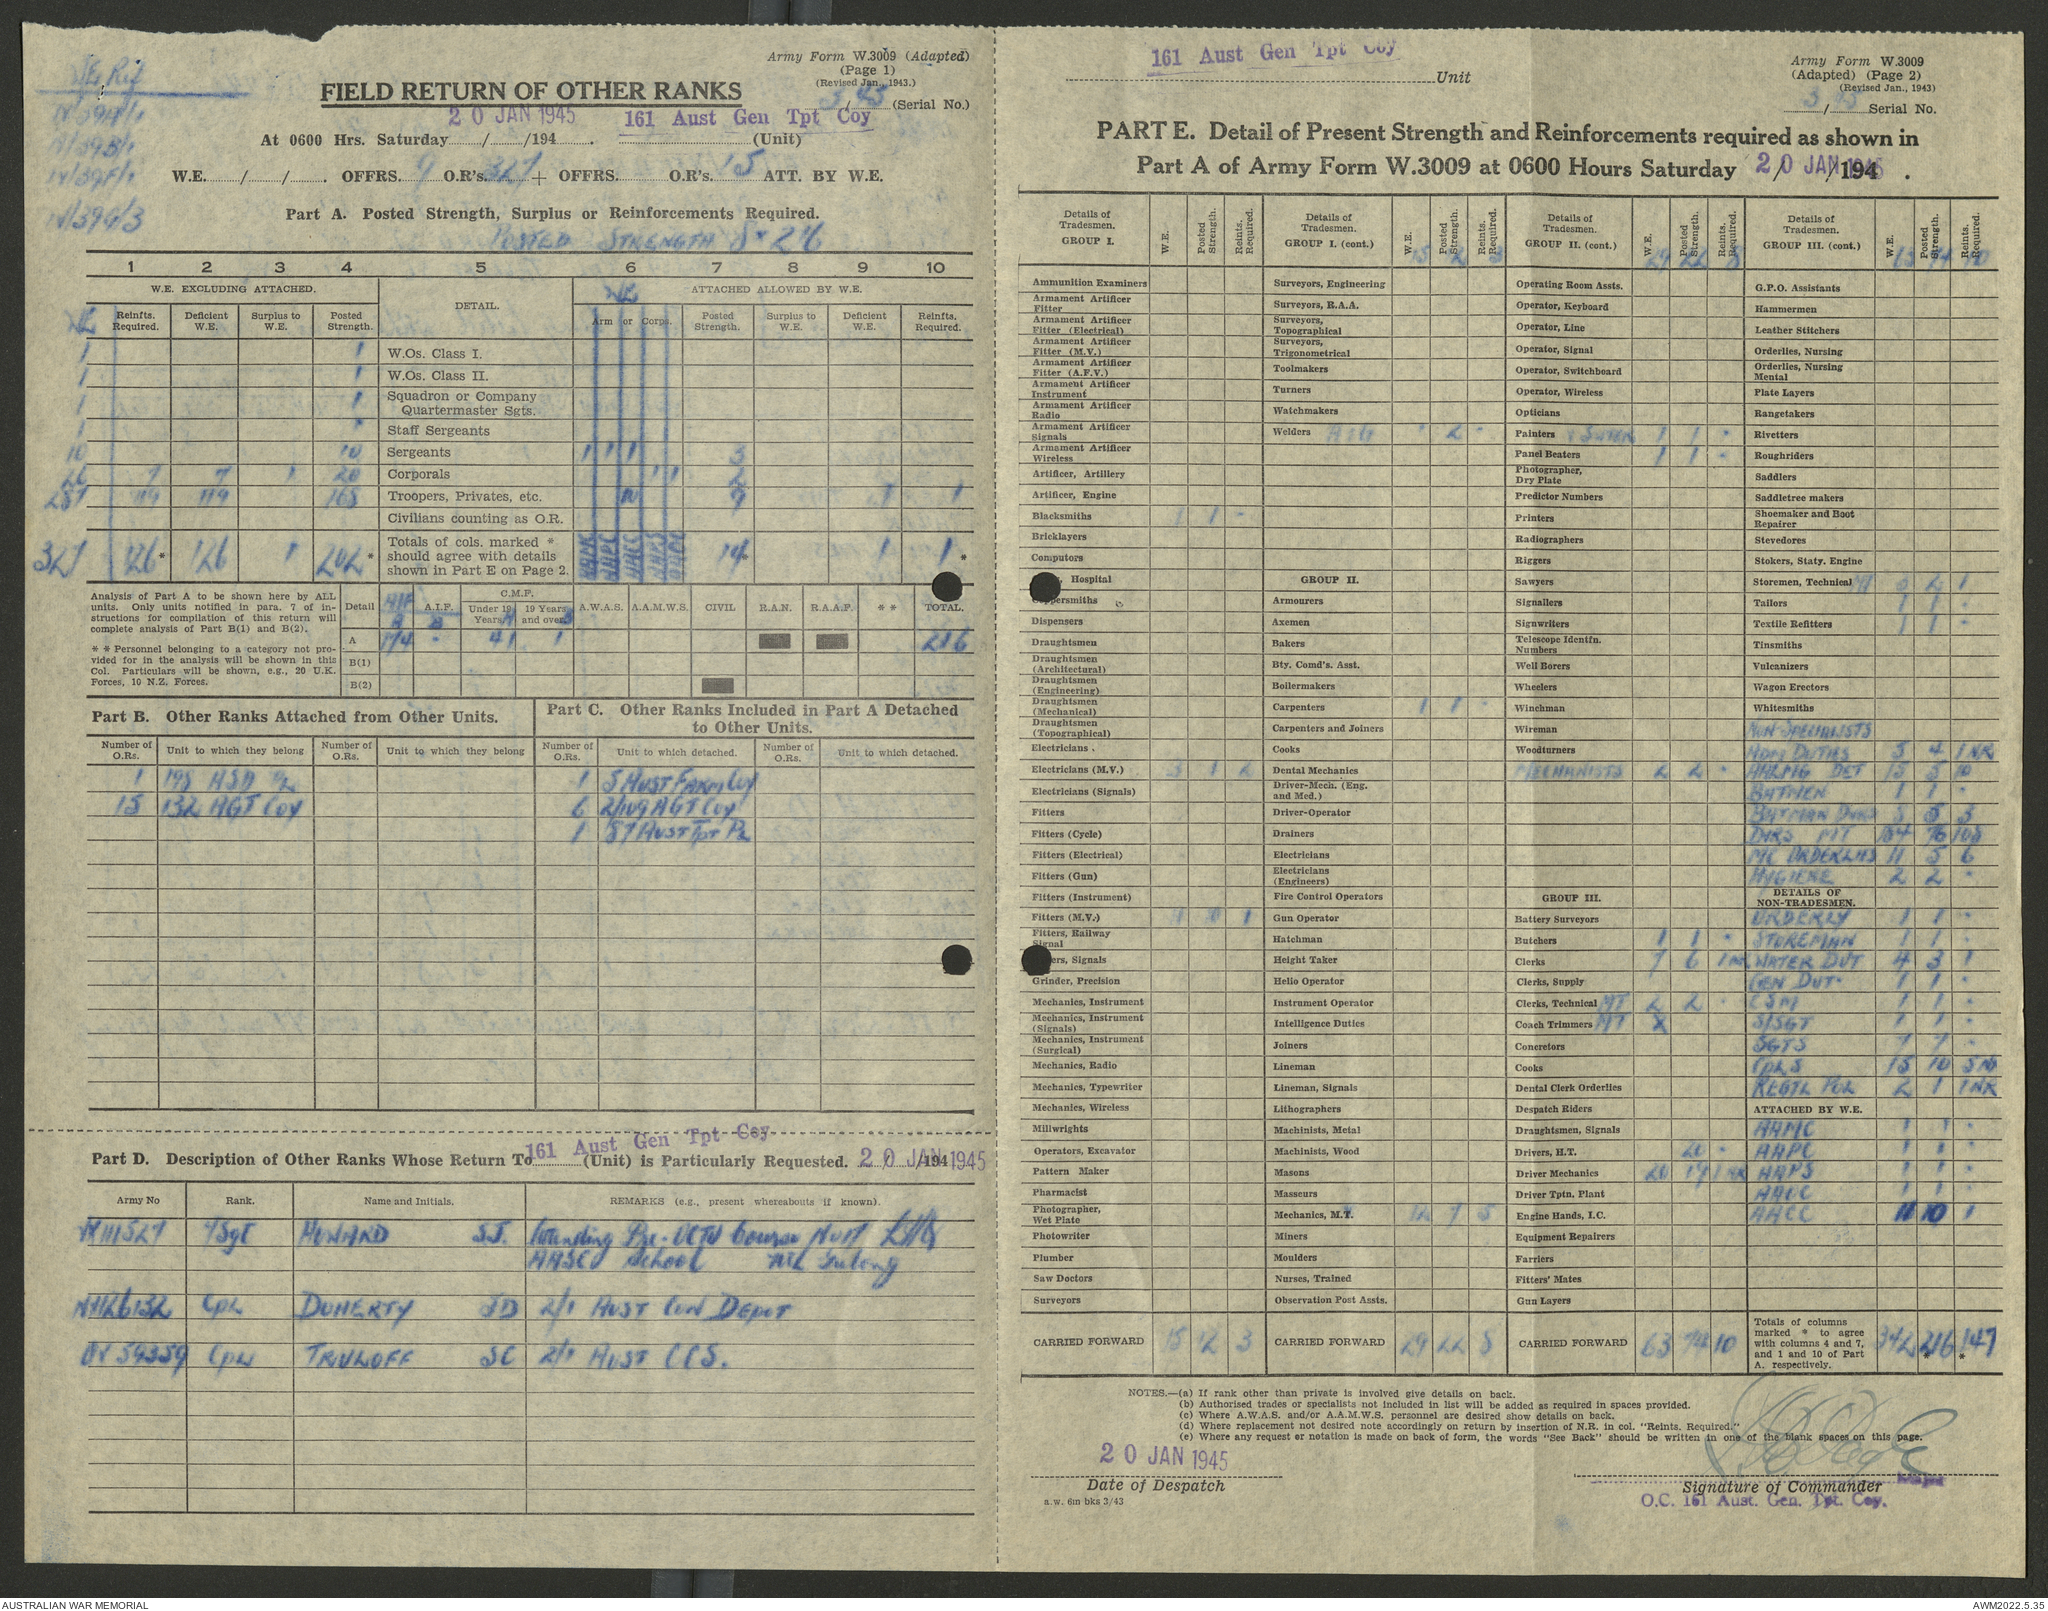 Army Form W.3009 (Adapted)
(Page 1)
(Revised Jan., 1943.)
FIELD RETURN OF OTHER RANKS
(Serial No.)
20 JAN 1945 161 Aust Gen Tpt Coy
At 0600 Hrs. Saturday / /194 . (Unit)
W.E. / / . OFFRS. 9 O.R's. 327 + OFFRS. O.R's. 15 ATT. BY W.E.
Part A. Posted Strength, Surplus or Reinforcements Required.
POSTED STRENGTH
1 2 3 4 5 6 7 8 9 10
W.E. EXCLUDING ATTACHED. DETAIL. ATTACHED ALLOWED BY W.E.
Reinfts. Required. Deficient W.E. Surplus to W.E. Posted Strength. Arm or Corps. Posted Strength. Surplus to W.E. Deficient W.E. Reinfts. Required.
1 1 W.Os. Class I.
1 1 W.Os. Class II.
1 1 Squadron or Company Quartermaster Sgts.
1 1 Staff Sergeants
10 10 Sergeants 1 1 1 3
26 7 7 1 20 Corporals 1 1 2
287 119 119 168 Troopers, Privates, etc. 9 1 1
Civilians counting as O.R.
327 126* 126 1 202* Totals of cols. marked * should agree with details shown in Part E on Page 2. 14* 1 1*
Analysis of Part A to be shown here by ALL units. Only units notified in para. 7 of instructions for compilation of this return will complete analysis of Part B(1) and B(2).
* * Personnel belonging to a category not provided for in the analysis will be shown in this Col. Particulars will be shown, e.g., 20 U.K. Forces, 10 N.Z. Forces.
Detail AIF A.I.F. C.M.F. Under 19 Years 19 Years and over A.W.A.S. A.A.M.W.S. CIVIL R.A.N. R.A.A.F. * * TOTAL.
A 174 - 41 1 216
B(1)
B(2)
Part B. Other Ranks Attached from Other Units.
Number of O.Rs. Unit to which they belong Number of O.Rs. Unit to which they belong
1
15 132 AGT Coy
Part C. Other Ranks Included in Part A Detached to Other Units.
Number of O.Rs. Unit to which detached. Number of O.Rs. Unit to which detached.
1 5 AUST FARM Coy
6 2/109 AGT Coy
1 87 AUST Tpt PL
161 Aust Gen Tpt Coy
Part D. Description of Other Ranks Whose Return To (Unit) is Particularly Requested. 20 JAN 1945 / /194
Army No Rank. Name and Initials. REMARKS (e.g., present whereabouts if known).
HOWARD S.J. Attending Pre-OCTU Course
AASC School
NX126132 Cpl DOHERTY JD 2/1 AUST CON DEPOT
Cpl SC 2/1 AUST CCS.
161 Aust Gen Tpt Coy
Unit
Army Form W.3009
(Adapted) (Page 2)
(Revised Jan., 1943)
Serial No.
PART E. Detail of Present Strength and Reinforcements required as shown in
Part A of Army Form W.3009 at 0600 Hours Saturday 20 JAN 1945 / /194 .
Details of Tradesmen. GROUP I. W.E. Posted Strength. Reints. Required.
Ammunition Examiners
Armament Artificer Fitter
Armament Artificer Fitter (Electrical)
Armament Artificer Fitter (M.V.)
Armament Artificer Fitter (A.F.V.)
Armament Artificer Instrument
Armament Artificer Radio
Armament Artificer Signals
Armament Artificer Wireless
Artificer, Artillery
Artificer, Engine
Blacksmiths 1 1 -
Bricklayers
Computors
Hospital
Dispensers
Draughtsmen
Draughtsmen (Architectural)
Draughtsmen (Engineering)
Draughtsmen (Mechanical)
Draughtsmen (Topographical)
Electricians
Electricians (M.V.) 3 1 2
Electricians (Signals)
Fitters
Fitters (Cycle)
Fitters (Electrical)
Fitters (Gun)
Fitters (Instrument)
Fitters (M.V.)
Fitters, Railway Signal
Signals
Grinder, Precision
Mechanics, Instrument
Mechanics, Instrument (Signals)
Mechanics, Instrument (Surgical)
Mechanics, Radio
Mechanics, Typewriter
Mechanics, Wireless
Millwrights
Operators, Excavator
Pattern Maker
Pharmacist
Photographer, Wet Plate
Photowriter
Plumber
Saw Doctors
Surveyors
CARRIED FORWARD 15 12 3
Details of Tradesmen. GROUP I. (cont.) W.E. Posted Strength. Reints. Required.
Surveyors, Engineering
Surveyors, R.A.A.
Surveyors, Topographical
Surveyors, Trigonometrical
Toolmakers
Turners
Watchmakers
Welders
GROUP II.
Armourers
Axemen
Bakers
Bty. Comd's. Asst.
Boilermakers
Carpenters 1 1 -
Carpenters and Joiners
Cooks
Dental Mechanics
Driver-Mech. (Eng. and Med.)
Driver-Operator
Drainers
Electricians
Electricians (Engineers)
Fire Control Operators
Gun Operator
Hatchman
Height Taker
Helio Operator
Instrument Operator
Intelligence Duties
Joiners
Lineman
Lineman, Signals
Lithographers
Machinists, Metal
Machinists, Wood
Masons
Masseurs
Mechanics, M.T. 12 7 5
Miners
Moulders
Nurses, Trained
Observation Post Assts.
CARRIED FORWARD 29 22 8
Details of Tradesmen. GROUP II. (cont.) W.E. Posted Strength. Reints. Required.
29 22 8
Operating Room Assts.
Operator, Keyboard
Operator, Line
Operator, Signal
Operator, Switchboard
Operator, Wireless
Opticians
Painters 1 1 -
Panel Beaters 1 1 -
Photographer, Dry Plate
Predictor Numbers
Printers
Radiographers
Riggers
Sawyers
Signallers
Signwriters
Telescope Identfn. Numbers
Well Borers
Wheelers
Winchman
Wireman
Woodturners
MECHANISTS 2 2 -
GROUP III.
Battery Surveyors
Butchers 1 1 -
Clerks 7 6
Clerks, Supply
Clerks, Technical MT 2 2 -
Coach Trimmers
Concretors
Cooks
Dental Clerk Orderlies
Despatch Riders
Draughtsmen, Signals
Drivers, H.T.
Driver Mechanics 20
Driver Tptn, Plant
Engine Hands, I.C.
Equipment Repairers
Farriers
Fitters' Mates
Gun Layers
CARRIED FORWARD 63 10
Details of Tradesmen. GROUP III. (cont.) W.E. Posted Strength. Reints. Required.
G.P.O. Assistants
Hammermen
Leather Stitchers
Orderlies, Nursing
Orderlies, Nursing Mental
Plate Layers
Rangetakers
Rivetters
Roughriders
Saddlers
Saddletree makers
Shoemaker and Boot Repairer
Stevedores
Stokers, Staty. Engine
Storemen, Technical
Tailors 1 1 -
Textile Refitters 1 1 -
Tinsmiths
Vulcanizers
Wagon Erectors
Whitesmiths
NON-SPECIALISTS
ADM DUTIES 5 4 1 NR
AALMG DET 15 5 10
BATMEN 1 1 -
BATMAN DVRS 8 5 3
DVRS MT 184 76 108
MC ORDERLIES 11 5 6
HYGIENE 2 2 -
DETAILS OF NON-TRADESMEN.
ORDERLY 1 1 -
STOREMAN 1 1 -
WATER DUT 4 3 1
GEN DUT 1 1 -
CSM 1 1 -
S/SGT 1 1 -
SGTS 7 7 -
CPLS 15 10 5 NR
REGTL POL 2 1 1 NR
ATTACHED BY W.E.
AAMC 1 1 -
AAPC 1 1 -
AAPS 1 1 -
AAOC 1 1 -
AACC 11 10 1
Totals of columns marked * to agree with columns 4 and 7, and 1 and 10 of Part A, respectively. 342 216* 147*
NOTES.—(a) If rank other than private is involved give details on back.
(b) Authorised trades or specialists not included in list will be added as required in spaces provided.
(c) Where A.W.A.S. and/or A.A.M.W.S. personnel are desired show details on back.
(d) Where replacement not desired note accordingly on return by insertion of N.R. in col. "Reints. Required."
(e) Where any request or notation is made on back of form, the words "See Back" should be written in one of the blank spaces on this page.
20 JAN 1945
Date of Despatch
a.w. 6m bks 3/43
Signature of Commander
O.C. 161 Aust. Gen. Tpt. Coy.
AUSTRALIAN WAR MEMORIAL
AWM2022.5.35